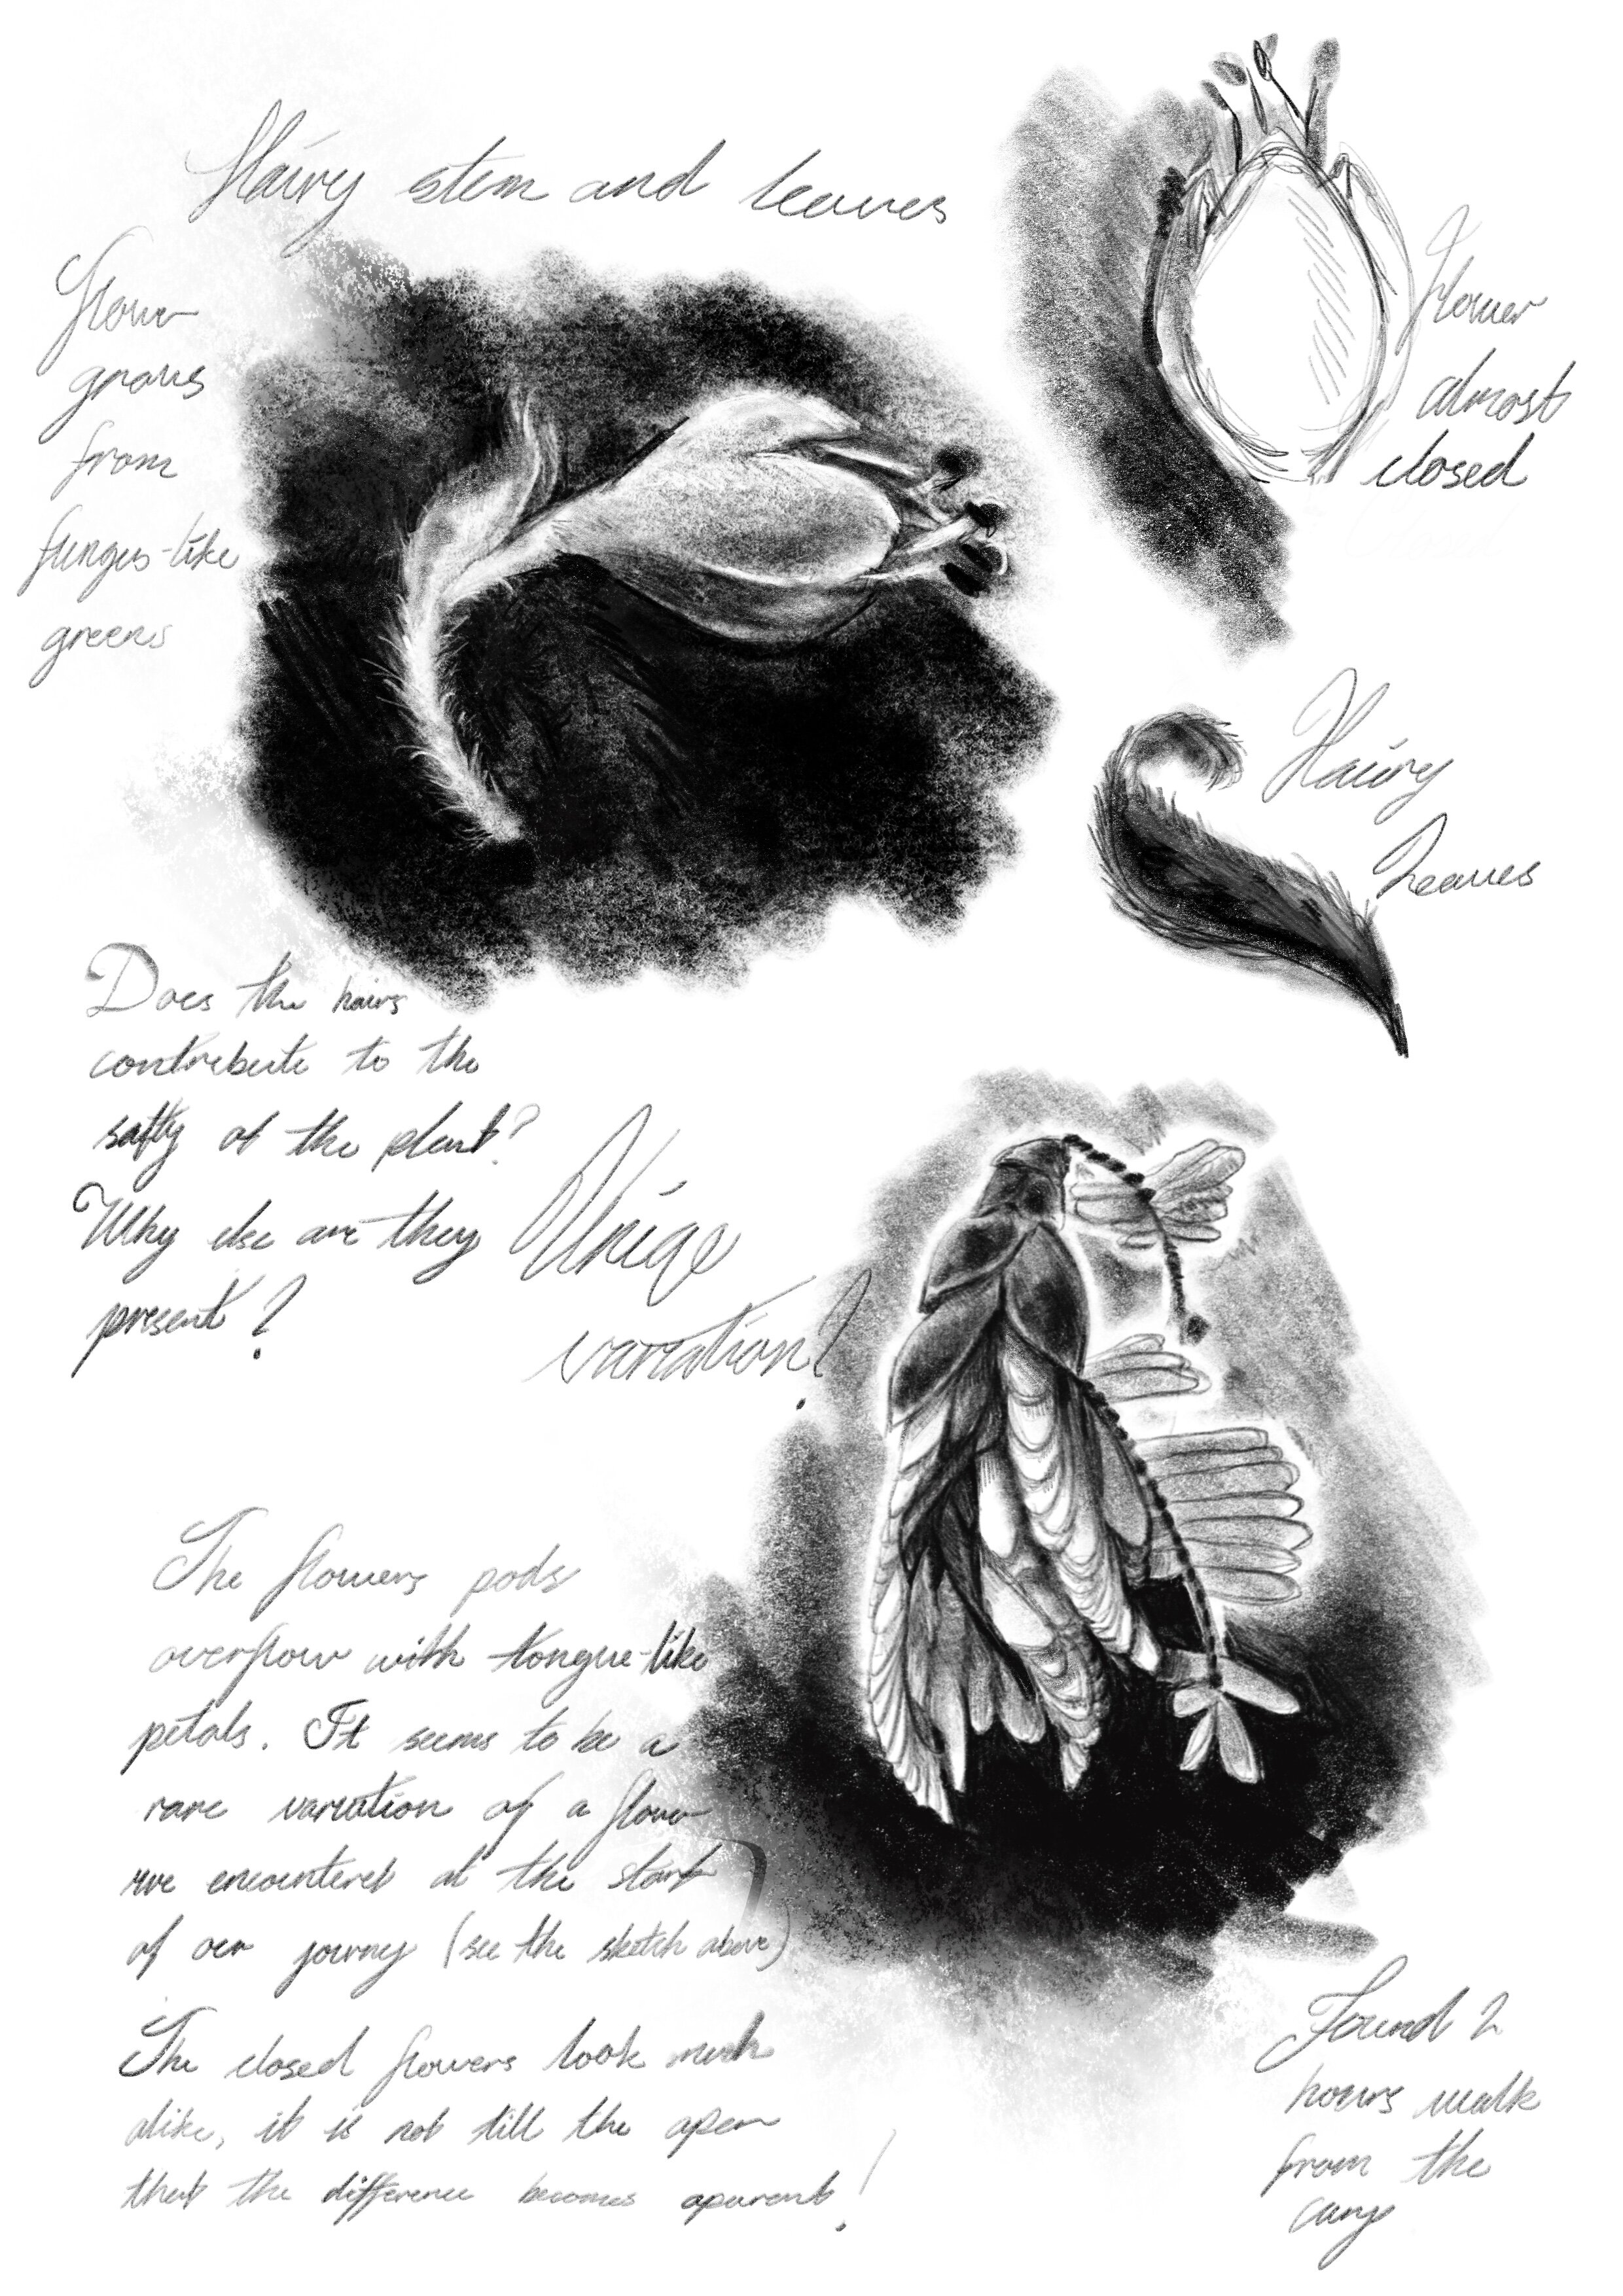 Hairy stem and leaves
flower
grows
from
fungus-like
greens
Flower
almost
closed
Hairy
Leaves
Does the hairs
contribute to the
safty of the plant?
Why else are they
present?
Uniqe
variation?
The flowers pods
overflow with tongue-like
petals. It seems to be a
rare variation of a flower
we encountered at the start
of our journey (see the sketch above)
The closed flowers look much
alike, it is not till the open
that the difference becomes aparent!
Found 2
hours walk
from the